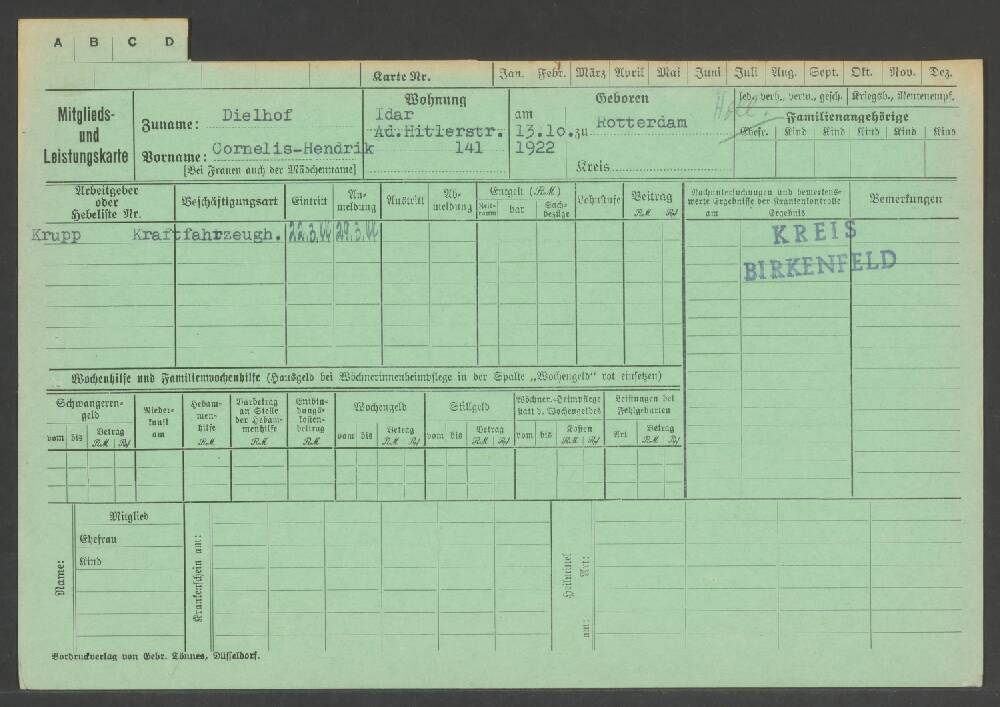 A B C D
Karte Nr. Jan. Febr. März April Mai Juni Juli Aug. Sept. Okt. Nov. Dez.
Mitglieds- und Leistungskarte
Zuname: Dielhof
Vorname: Cornelis-Hendrik
[Bei Frauen auch der Mädchenname]
Wohnung
Idar
Ad.Hitlerstr.
141
Geboren
am 13.10. zu Rotterdam
1922
Kreis
Holl.
led., verh., verw., gesch. Kriegsb., Rentenempf.
Familienangehörige
Ehefr. Kind Kind Kind Kind Kind
Arbeitgeber oder Hebeliste Nr. Beschäftigungsart Eintritt An-meldung Austritt Ab-meldung Entgelt (RM) Zeit-raum bar Sach-bezüge Lohnstufe Beitrag RM Rpf
Nachuntersuchungen und bemerkens-
werte Ergebnisse der Krankenkontrolle
am Ergebnis
Bemerkungen
Krupp Kraftfahrzeugh. 22.3.44 29.3.44
KREIS
BIRKENFELD
Wochenhilfe und Familienwochenhilfe (Hausgeld bei Wöchnerinnenheimpflege in der Spalte „Wochengeld" rot einsetzen)
Schwangeren-geld vom bis Betrag RM Rpf
Nieder-kunft am
Hebam-men-hilfe RM
Barbetrag an Stelle der Hebam-menhilfe RM
Entbin-dungs-kosten-beitrag RM
Wochengeld vom bis Betrag RM Rpf
Stillgeld vom bis Betrag RM Rpf
Wöchner.-Heimpflege statt d. Wochengeldes vom bis Kosten RM Rpf
Leistungen bei Fehlgeburten Art Betrag RM Rpf
Name:
Mitglied
Ehefrau
Kind
Krankenschein am:
Heilmittel
Art:
am:
Vordruckverlag von Gebr. Tönnes, Düsseldorf.